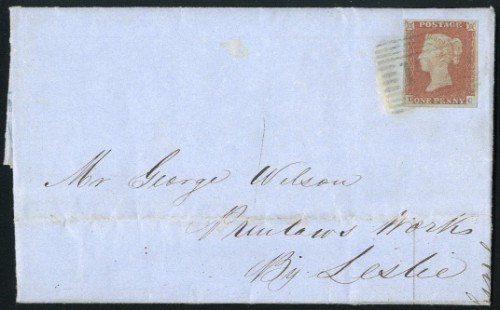 POSTAGE
ONE PENNY
Mr George Wilson
Prinlaws Works
By Leslie